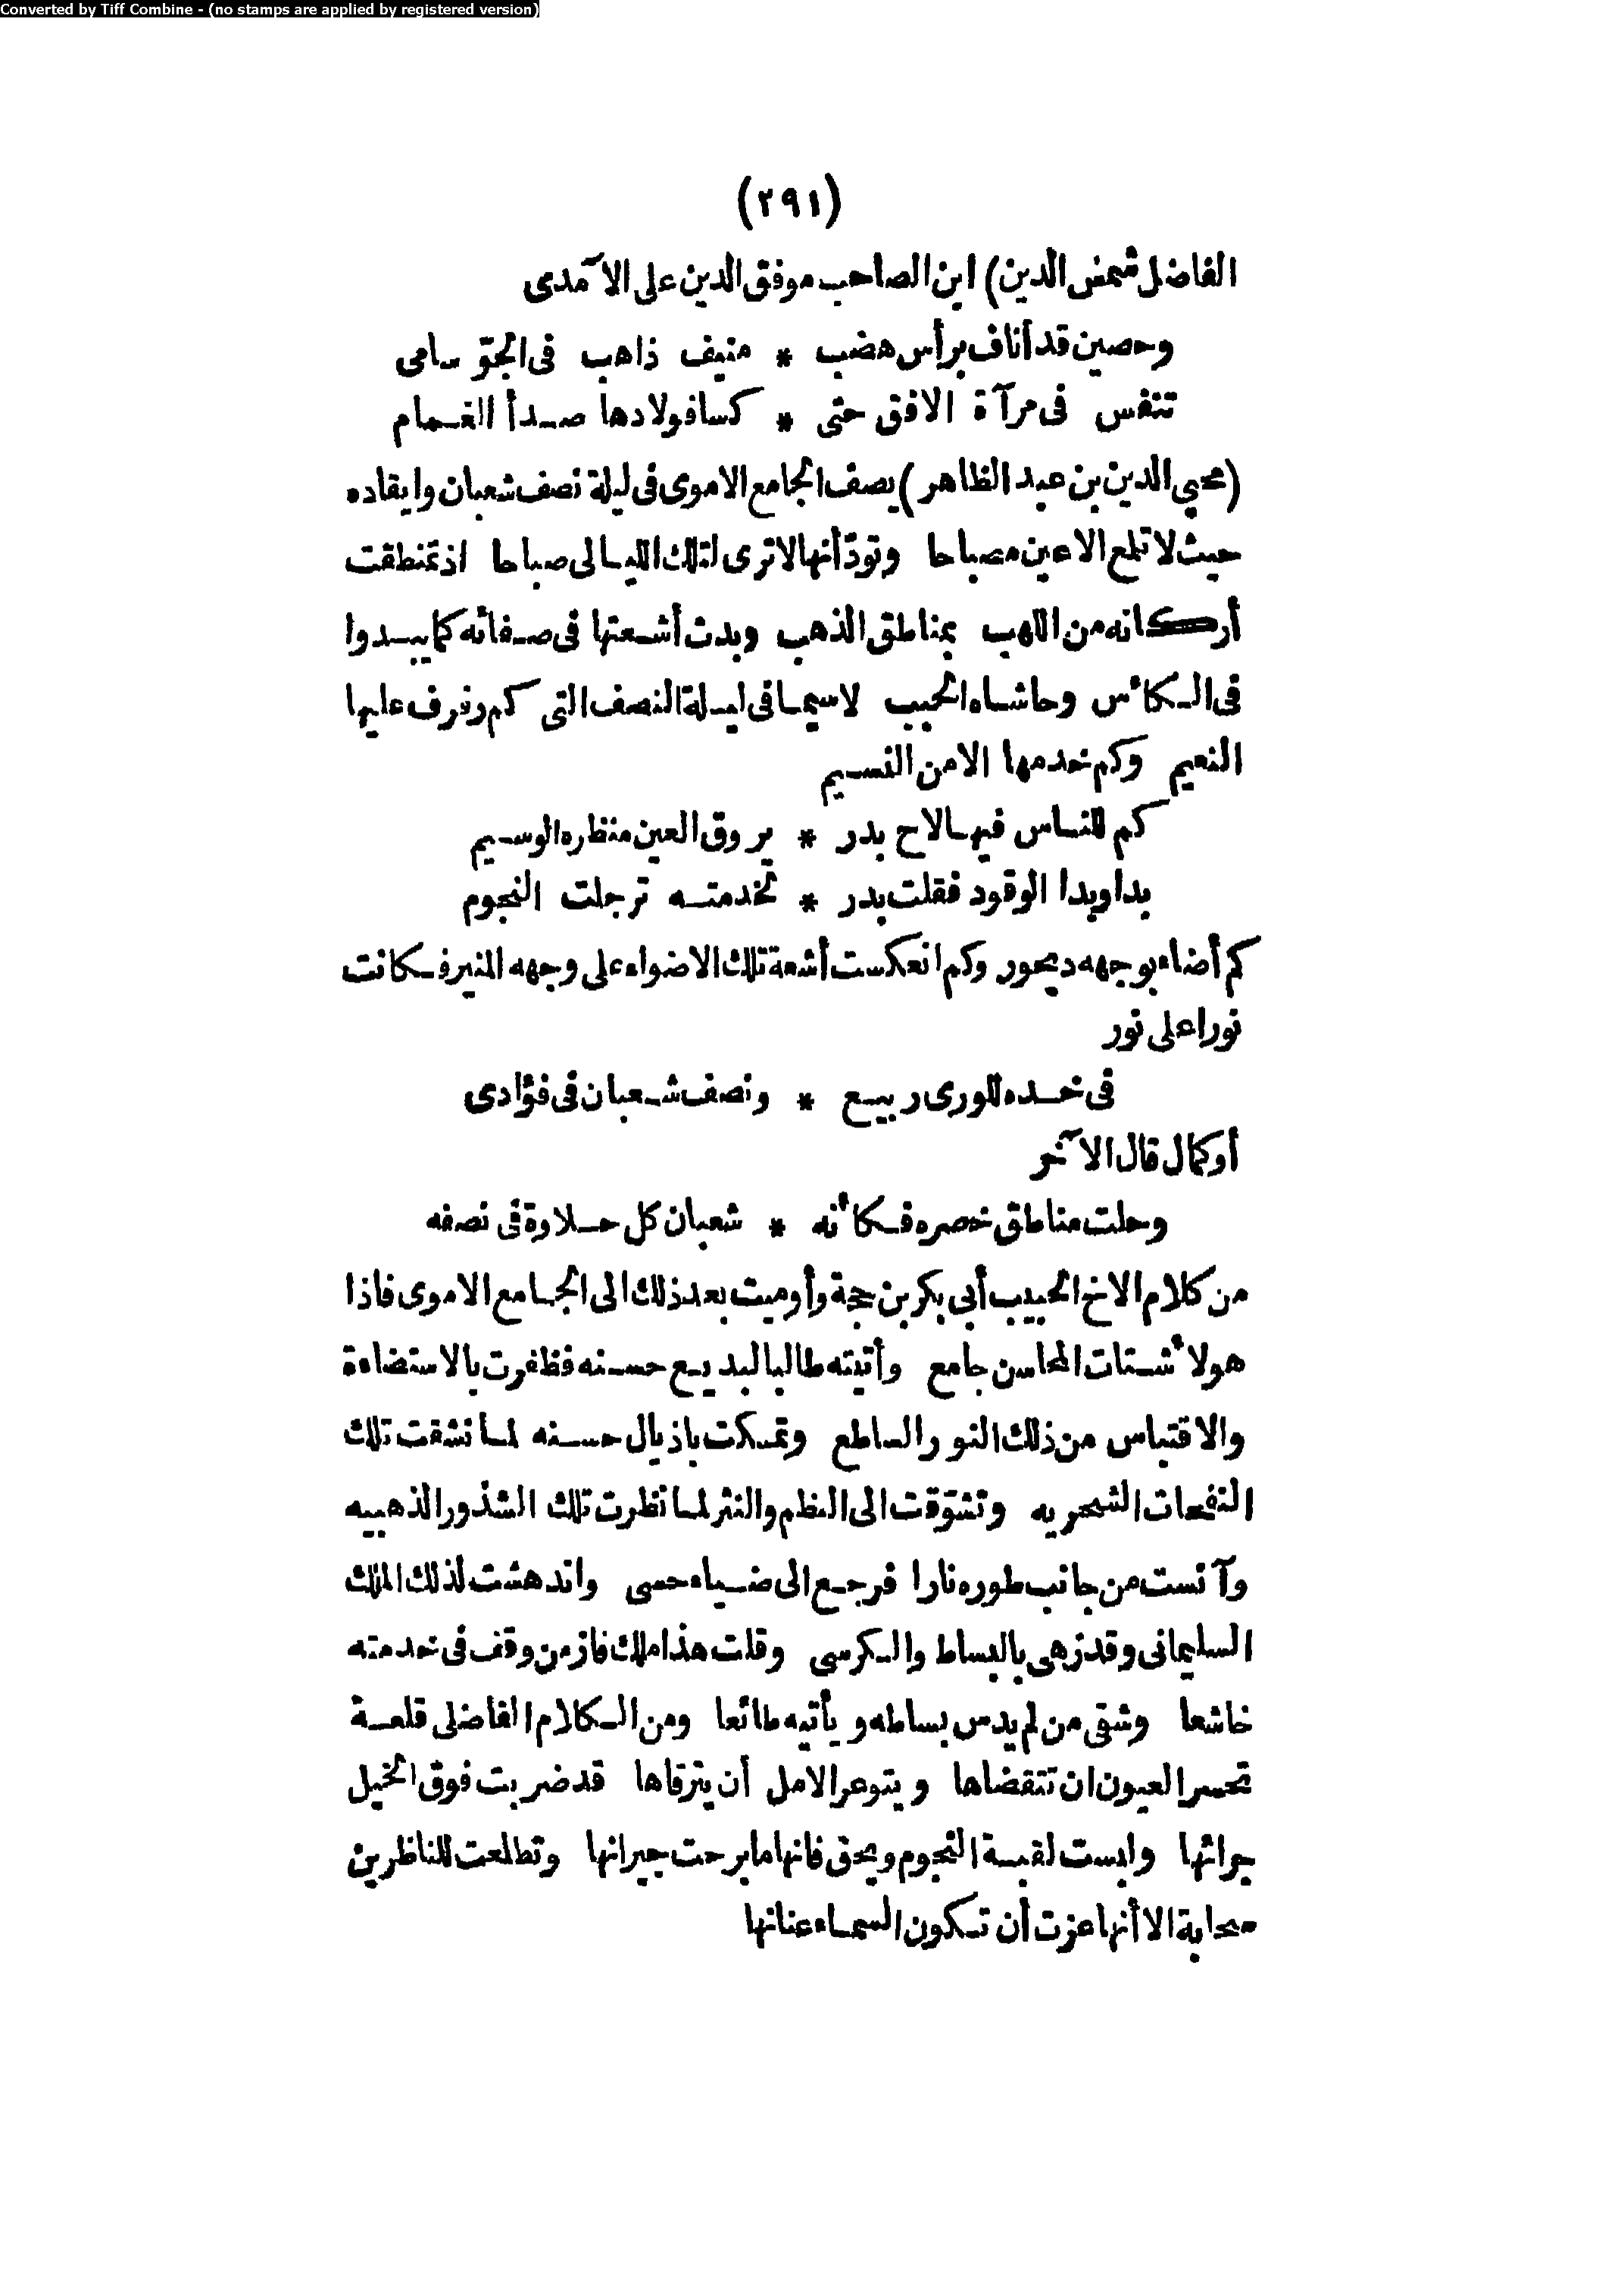 Converted by Tiff Combine - (no stamps are applied by registered version)
(٢٩١)
الفاضل شمس الدين) ابن الصاحب موفق الدين على الآمدى
وحصين قد أناف برأس هضب * منيف ذاهب فى الجوّ سامى
تنفس فى مرآة الافق حتى * كسا فولادها صدأ الغمام
(محيي الدين بن عبد الظاهر) يصف الجامع الاموى فى ليلة نصف شعبان وايقاده
حيث لا تلمع الاعين مصباحا وتودّ أنها لا ترى لتلك الليالى صباحا اذ تمنطقت
أركانه من اللهب بمناطق الذهب وبدت أشعتها فى صفائه كما يبدوا
فى الكأس وحاشاه الحبب لاسيما فى ليلة النصف التى كم رفرف عليها
النعيم وكم خدمها الامن النسيم
كم للناس فيها لاح بدر * يروق العين منظره الوسيم
بدا وبدا الوقود فقلت بدر * لخدمته ترجلت النجوم
كم أضاء بوجهه ديجور وكم انعكست أشعة تلك الاضواء على وجهه المنير فكانت
نورا على نور
فى خده للورى ربيع * ونصف شعبان فى فؤادى
أو كمال قال الآخر
وحلت مناطق خصره فكأنه * شعبان كل حلاوة فى نصفه
من كلام الاخ الحبيب أبى بكر بن حجة وأوميت بعد ذلك الى الجامع الاموى فاذا
هو لأشتات المحاسن جامع وأتيته طالبا لبديع حسنه فظفرت بالاستضاءة
والاقتباس من ذلك النور الساطع وتمسكت باذيال حسنه لما نشقت تلك
النفحات الشحريه وتشوّقت الى النظم والنثر لما نظرت تلك الشذور الذهبيه
وآنست من جانب طوره نارا فرجع الى ضياء حسى واندهشت لذلك الملك
السليمانى وقد زهى بالبساط والكرسى وقلت هذا ملك فاز من وقف فى خدمته
خاشعا وشقى من لم يدس بساطه ويأتيه طائعا ومن الكلام الفاضلى قلعة
تحسر العيون ان تتقضاها ويتوعر الامل أن يترقاها قد ضربت فوق الخيل
جرانها ولبست لقبسة النجوم ويحق فانها ما برحت جيرانها وتطلعت للناظرين
سحابة الا أنها عزت أن تكون السماء عنانها